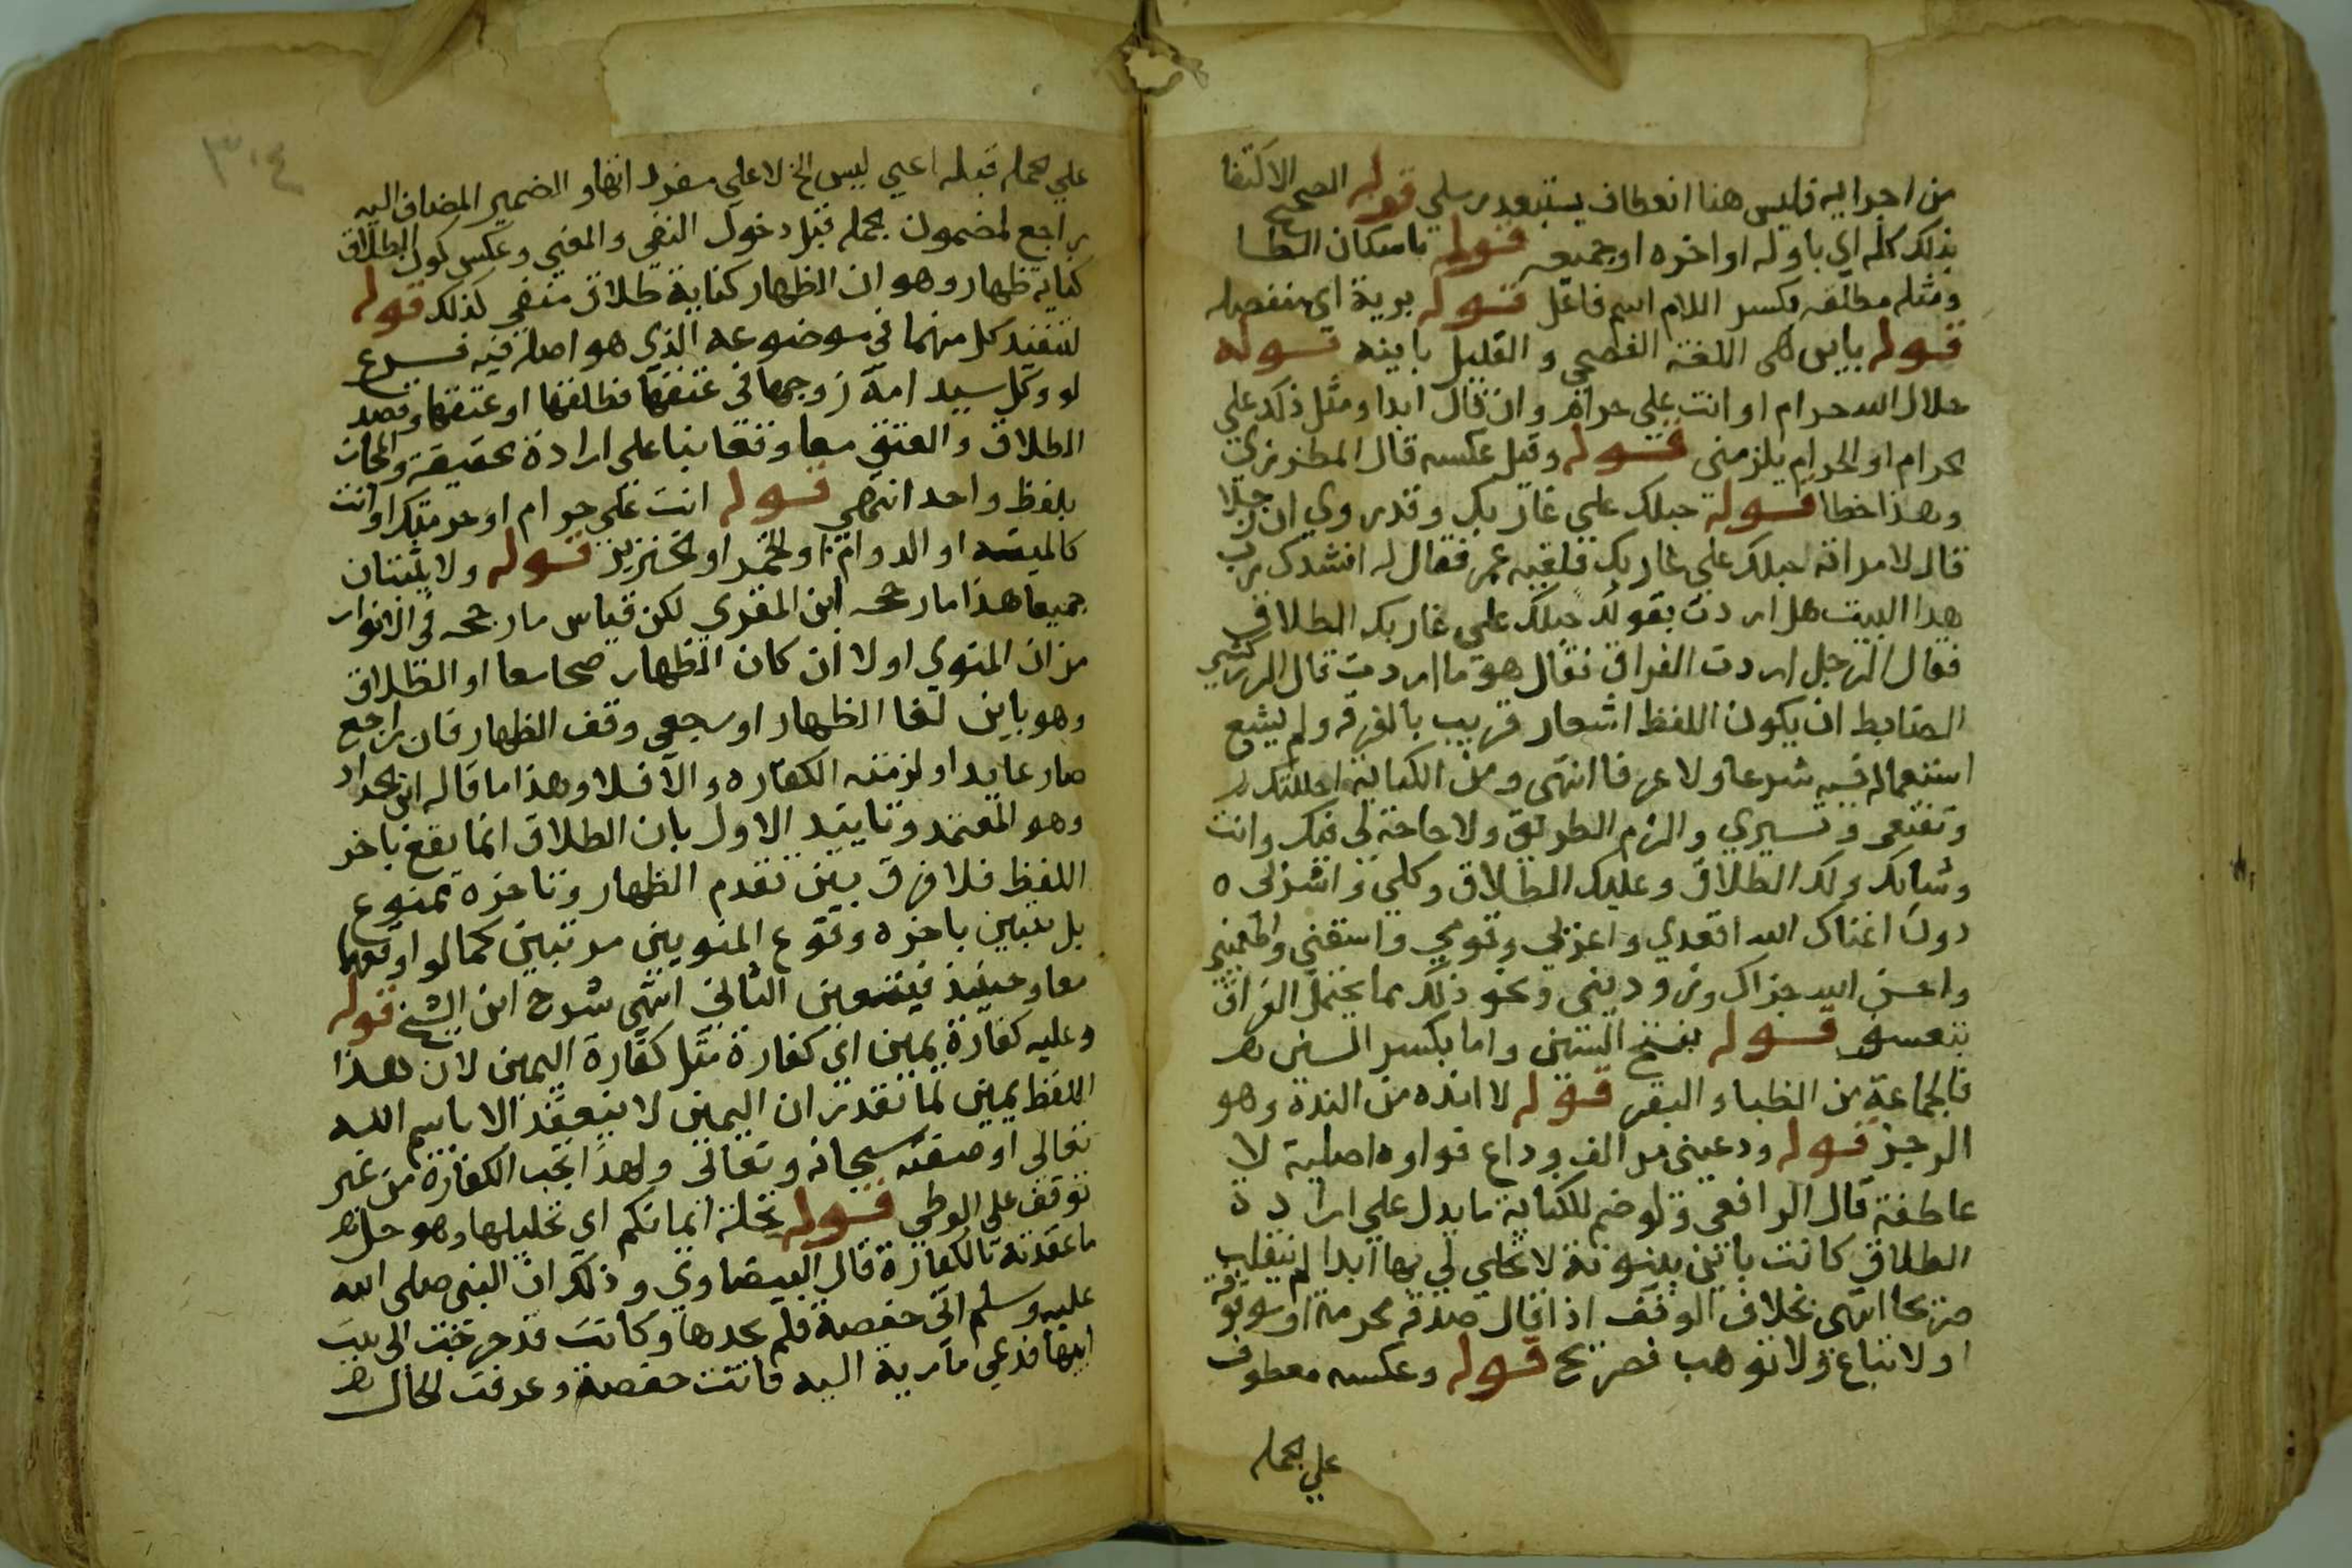 من اجرايه فليس هنا انعطاف يستبعد رملي قوله الصحيح الاكتفا
بذلك كله اي باوله او اخره او جميعه قوله باسكان الطا
ومثله مطلقه بكسر اللام اسم فاعل قوله برية اي منفصله
قوله باين هي اللغة الفصحى والقليل باينه قوله
حلال الله حرام او انت علي حرام وان قال ابدا ومثل ذلك علي
الحرام او الحرام يلزمني قوله وقيل عكسه قال المطرزي
وهذا خطا قوله حبلك علي غاربك وقد روي ان رجلا
قال لامراته حبلك علي غاربك فلقيه عمر فقال له انشدك برب
هذا البيت هل اردت بقولك حبلك علي غاربك الطلاق
فقال الرجل اردت الفراق فقال هو ما اردت قال الزركشي
الضابط ان يكون اللفظ اشعار قريب بالفرقه ولم يشع
استعماله فيه شرعا ولا عرفا انتهى ومن الكناية احللتك
وتقنعي وتستري والزم الطريق ولا حاجة لي فيك وانت
وشانك ولك الطلاق وعليك الطلاق وكلي واشربي ه
دون اغناك الله اقعدي واغزلي وقومي واسقني واطعميني
واحسن الله جزاك وزوديني ونحو ذلك مما يحتمل الفراق
بتعسف قوله بفتح السين واما بكسر السين
فالجماعة من الظبا والبقر قوله لا انده من النده وهو
الزجر قوله ودعيني مر الف وداع فواوه اصلية لا
عاطفة قال الرافعي ولو ضم للكناية ما يدل علي ارادة
الطلاق كانت باين بينونة لا تحلي لي بها ابدا لم ينقلب
صريحا انتهى بخلاف الوقف اذا قال صدقه محرمة او موقوفة
او لا تباع ولا توهب فصريح قوله وعكسه معطوف
علي الجمله
٣٠٤
علي الجمله قبله اعني ليس الخ لا علي مفرد انها و الضمير المضاف اليه
راجع لمضمون الجمله قبل دخول النفي والمعنى وعكس كون الطلاق
كناية ظهار وهو ان الظهار كناية طلاق منفي كذلك قوله
لتنفيذ كل منهما في موضوعه الذي هو اصل فيه فرع
لو وكل سيد امة زوجها في عتقها فطلقها او عتقها وقصد
الطلاق والعتق معا وقعا بنا علي ارادة الحقيقة والمجاز
بلفظ واحد انتهى قوله انت علي حرام او حرمتك او انت
كالميته او الدم او الخمر او الخنزير قوله ولا يثبتان
جميعا هذا ما رجحه ابن المقري لكن قياس ما رجحه في الانوار
من ان المنوي اولا ان كان الظهار صحا معا او الطلاق
وهو باين لغا الظهار او رجعي وقف الظهار فان راجع
صار عايدا ولزمته الكفاره والا فلا وهذا ما قاله ابن الحداد
وهو المعتمد وتاييد الاول بان الطلاق انما يقع باخر
اللفظ فلا فرق بين تقدم الظهار وتاخره ممنوع
بل يتبين باخره وقوع المنويين مرتبين كما لو اوقعهما
معا وحينيذ فيتعين الثاني انتهى شرح ابن الشيخ قوله
وعليه كفارة يمين اي كفارة مثل كفارة اليمين لان هذا
اللفظ يمين لما تقدم ان اليمين لا ينعقد الا باسم الله
تعالى او صفته سبحانه وتعالى ولهذا تجب الكفارة من غير
توقف علي الوطي قوله تحلة ايمانكم اي تحليلها وهو حل
ما عقدته بالكفارة قال البيضاوي وذلك ان النبي صلى الله
عليه وسلم اتى حفصة فلم يجدها وكانت قد خرجت الى بيت
ابيها فدعي مارية اليه فاتت حفصة وعرفت الحال